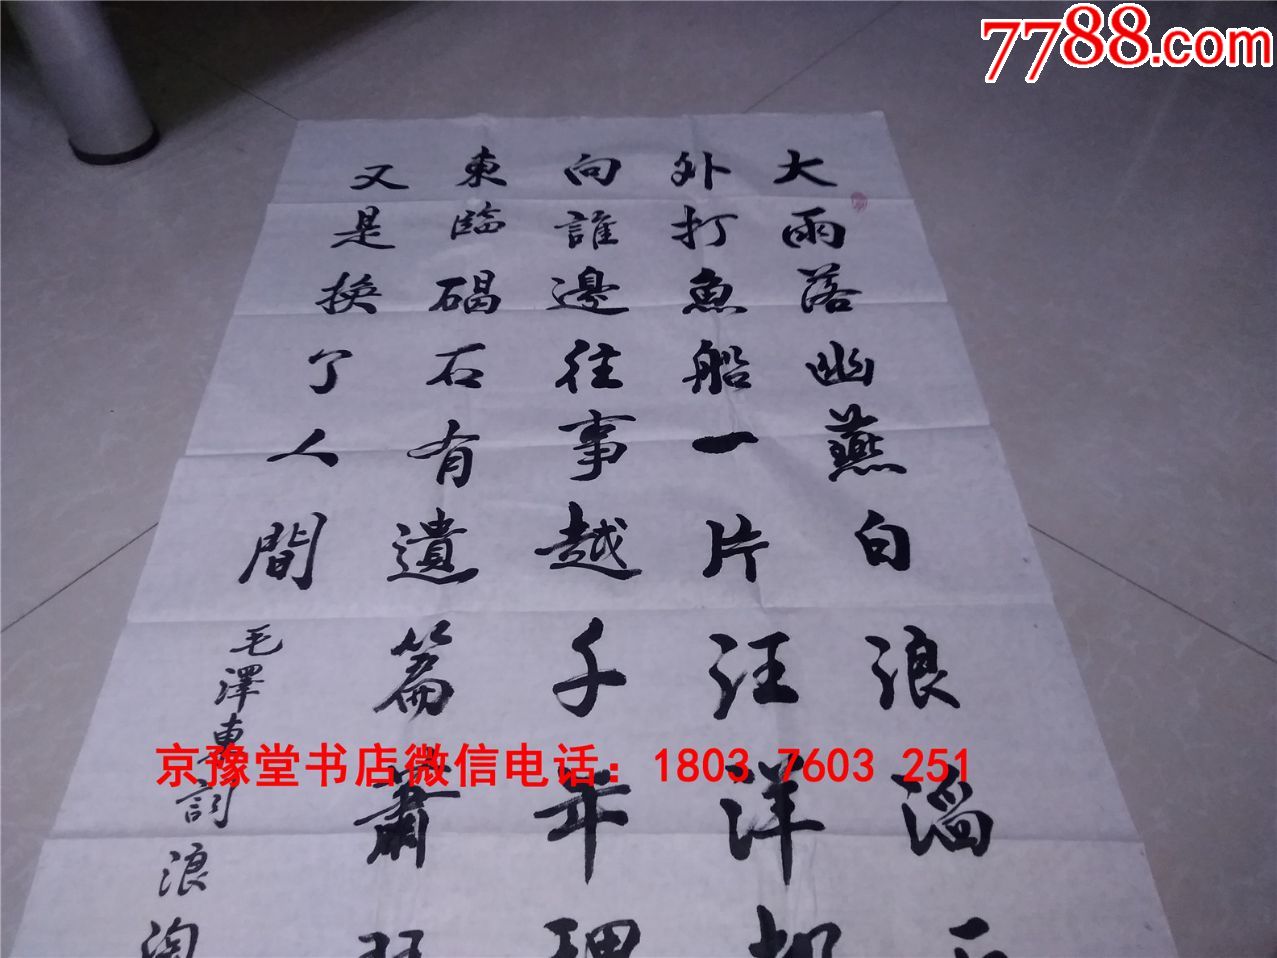 7788.com
大雨落幽燕白浪滔
外打魚船一片汪洋都
向誰邊往事越千年
東臨碣石有遺篇蕭
又是換了人間
毛澤東詞浪淘
京豫堂书店微信电话：18037603251